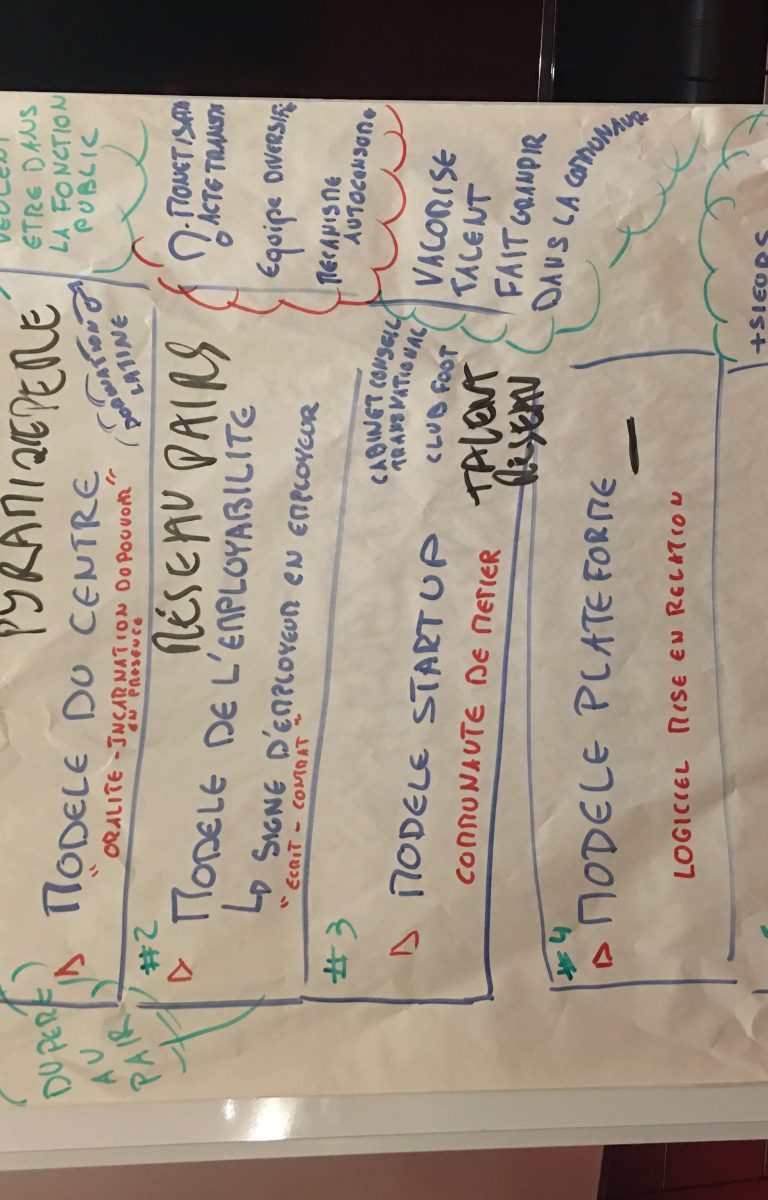 PYRAMIDE PERE
VEULENT
ETRE DANS
LA FONCTION
PUBLIC
MODELE DU CENTRE
(DOMATION
LATINE)
"ORALITE - INCARNATION DU POUVOIR"
EN PRESENCE
DU PERE
AU
PAIR
#2
RÉSEAU PAIRS
MODELE DE L'EMPLOYABILITE
SIGNE D'EMPLOYEUR EN EMPLOYEUR
"ECRIT - CONTRAT"
EQUIPE DIVERSIFIE
MECANISME
AUTOCONSOME
#3
CABINET CONSEIL
TRANSNATIONAL
CLUB FOOT
MODELE STARTUP
TALENT
RÉSEAU
COMMUNAUTE DE METIER
VALORISE
TALENT
FAIT GRANDIR
DANS LA COMMUNAUTE
#4
MODELE PLATEFORME
LOGICIEL MISE EN RELATION
+SIEURS